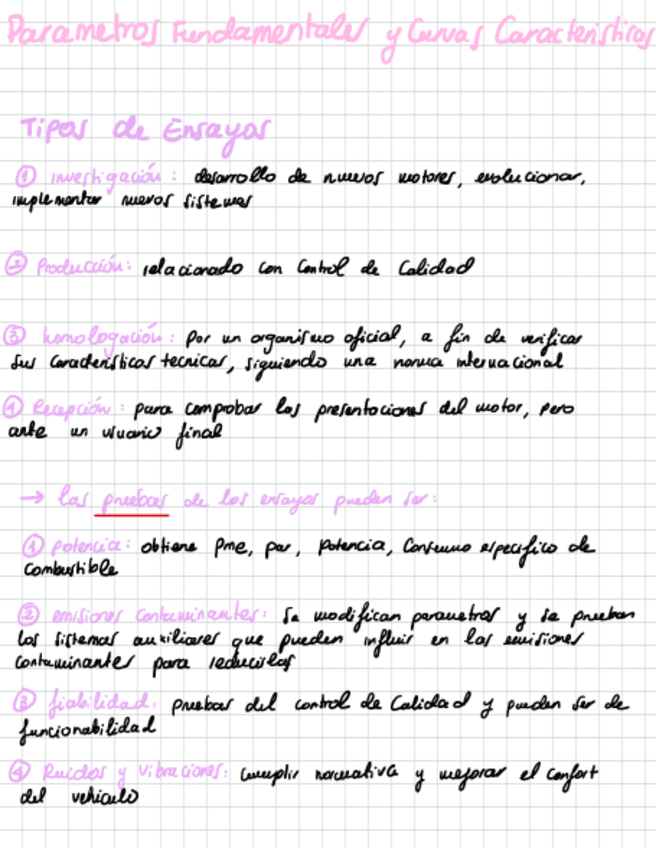 Parametros Fundamentales y Curvas Caracteristicas
Tipos de Ensayos
① investigación: desarrollo de nuevos motores, evolucionar,
implementar nuevos sistemas
② Producción: relacionado con Control de Calidad
③ homologación: Por un organismo oficial, a fin de verificar
sus características tecnicas, siguiendo una norma internacional
④ Recepción: para comprobar las presentaciones del motor, pero
ante un usuario final
→ las pruebas de los ensayos pueden ser:
① potencia: obtiene pme, par, potencia, Consumo especifico de
combustible
② emisiones contaminantes: Se modifican parametros y se prueban
los sistemas auxiliares que pueden influir en las emisiones
contaminantes para reducirlas
③ fiabilidad: pruebas del control de Calidad y pueden ser de
funcionabilidad
④ Ruidos y vibraciones: cumplir normativa y mejorar el confort
del vehiculo